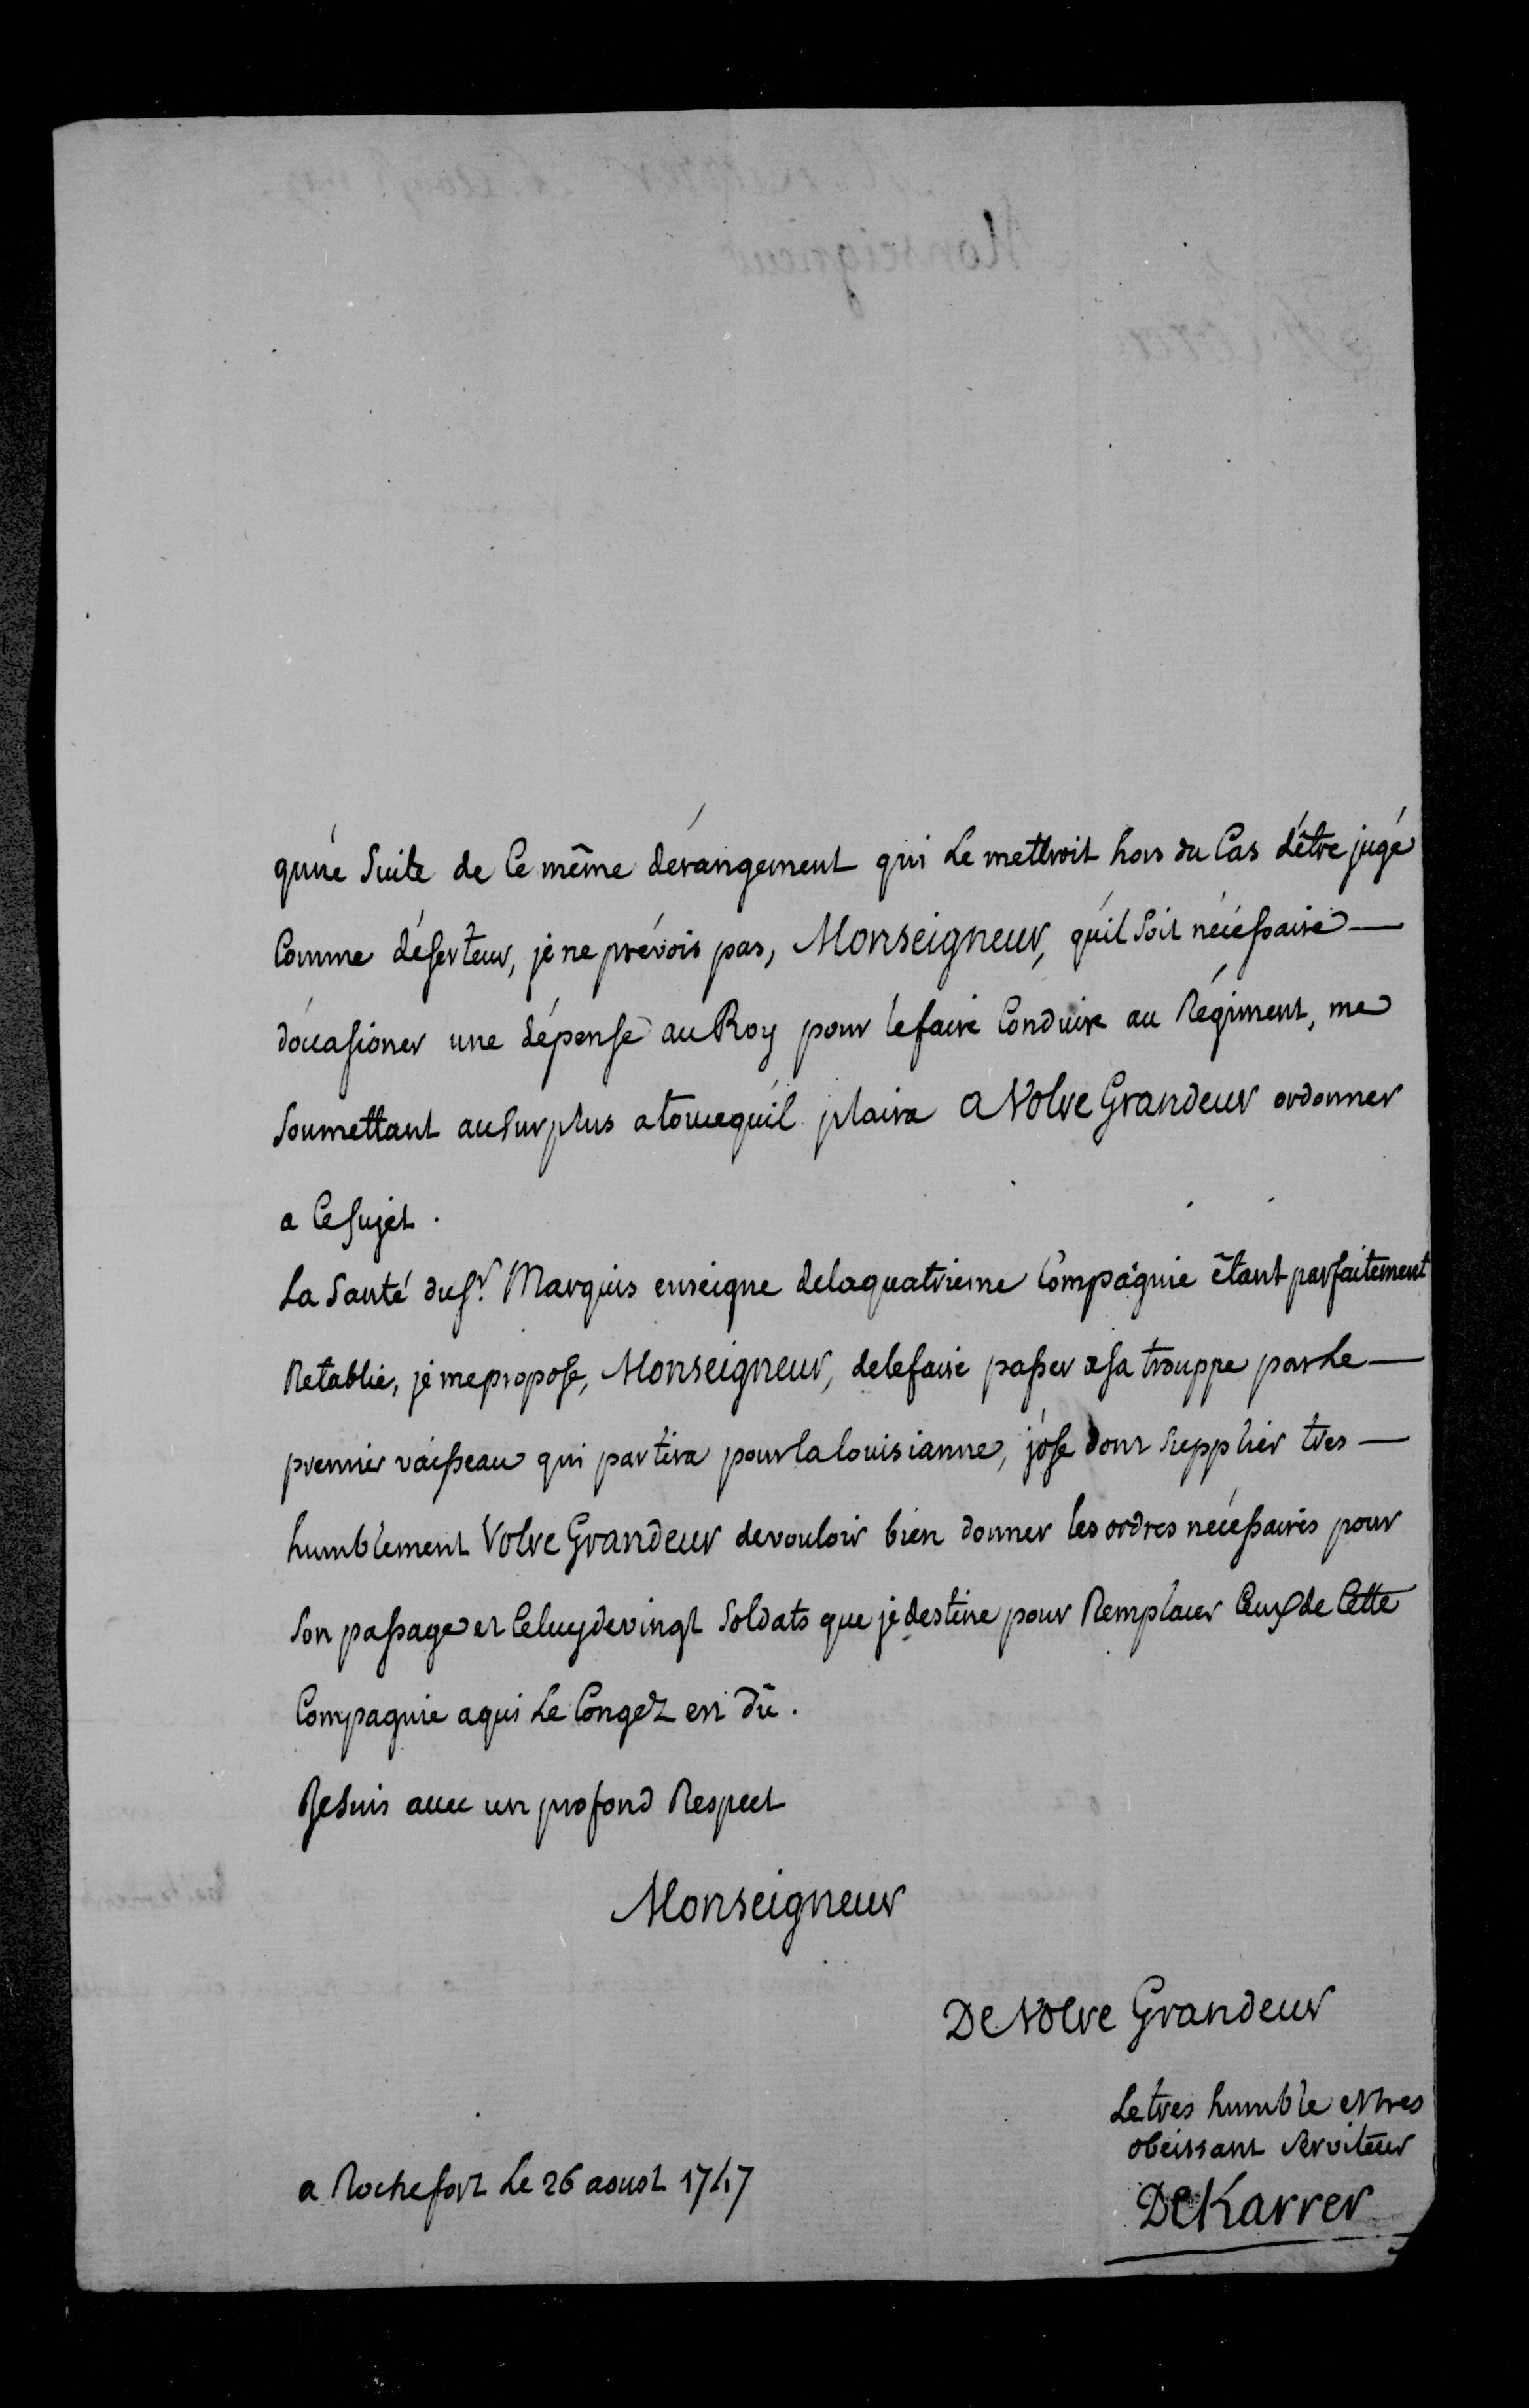 qu'ue Suite de Ce même dérangement qui Le mettroit hors du Cas d'être jugé
Comme déserteur, je ne prévois pas, Monseigneur, qu'il soit nécéssaire —
d'occasioner une dépense au Roy pour le faire Conduire au Régiment, me
Soumettant au surplus a tout cequ'il plaira a Votre Grandeur ordonner
a Ce sujet.
La Santé du Sr. Marquis enseigne de la quatrieme Compagnie êtant parfaitement
Retablie, je me propose, Monseigneur, de le faire passer a sa trouppe par Le —
premier vaisseau qui partira pour la louisianne, j'ose donc supplier tres —
humblement Votre Grandeur de vouloir bien donner les ordres nécéssaires pour
Son passage et Celuy de vingt Soldats que je destine pour Remplacer Ceux de Cette
Compagnie a qui Le Congéz est dû.
Je Suis avec un profond Respect
Monseigneur
De Votre Grandeur
Le tres humble et tres
obeissant serviteur
a Rochefort Le 26 aoust 1747
DeKarrer